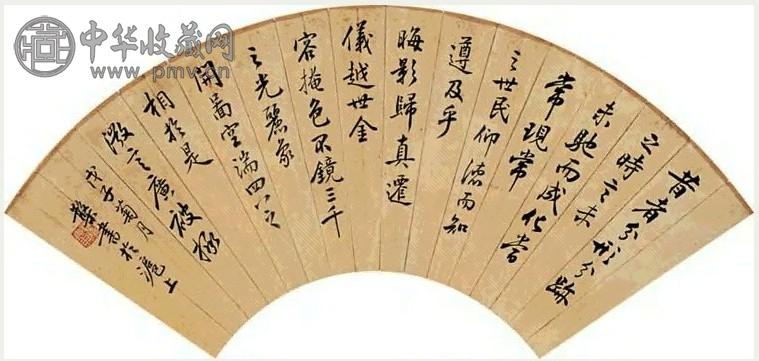 中华收藏网
www.pmv.cn
昔者分形分跡
之時言未
未馳而成化當
常現常
之世民仰德而知
遵及乎
晦影歸真遷
儀越世金
容掩色不鏡三千
之光麗象
開圖空端四八之
相於是
微言廣被拯
戊子菊月
書於滬上